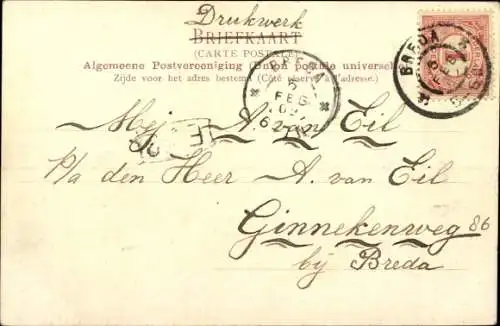 Drukwerk
BRIEFKAART
(CARTE POSTALE)
Algemeene Postvereeniging (Union postale universelle)
Zijde voor het adres bestemd (Côté réservé à l'adresse.)
BREDA
FEB
BREDA
FEB
Mej. A. van Eil
P/a den Heer A. van Eil
Ginnekenweg 86
bij Breda